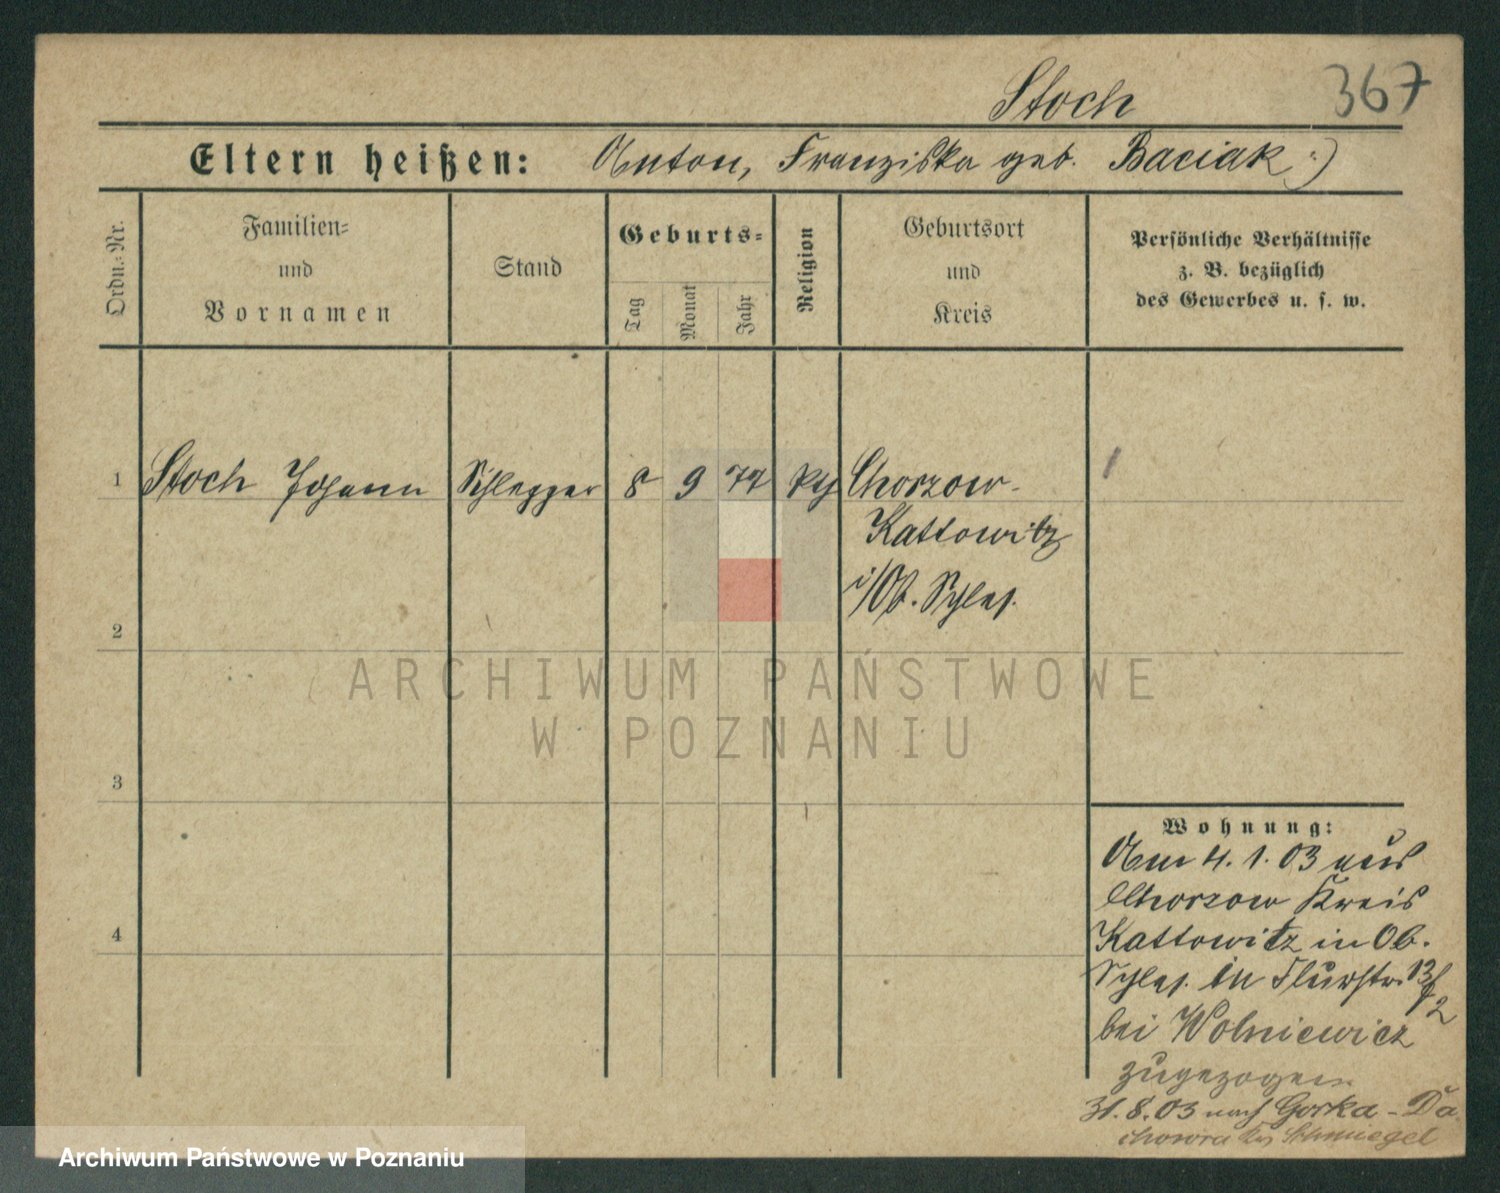 Stoch 367
Eltern heißen: Anton, Franziska geb. Baciak
Ordn.-Nr.
Familien-
und
Vornamen
Stand
Geburts-
Tag
Monat
Jahr
Religion
Geburtsort
und
Kreis
Persönliche Verhältnisse
z. B. bezüglich
des Gewerbes u. s. w.
1 Stoch Johann 8 9 79 kth Chorzow-
Kattowitz
i/Ob. Schles.
2
3
4
ARCHIWUM PAŃSTWOWE
W POZNANIU
Wohnung:
Am 4. 1. 03 aus
Chorzow Kreis
Kattowitz in Ob.
Schles. in Flurstr. 13
2
bei Wolniewicz
zugezogen
31. 8. 03 nach Gorka-Du
chowna Krs Schmiegel
Archiwum Państwowe w Poznaniu